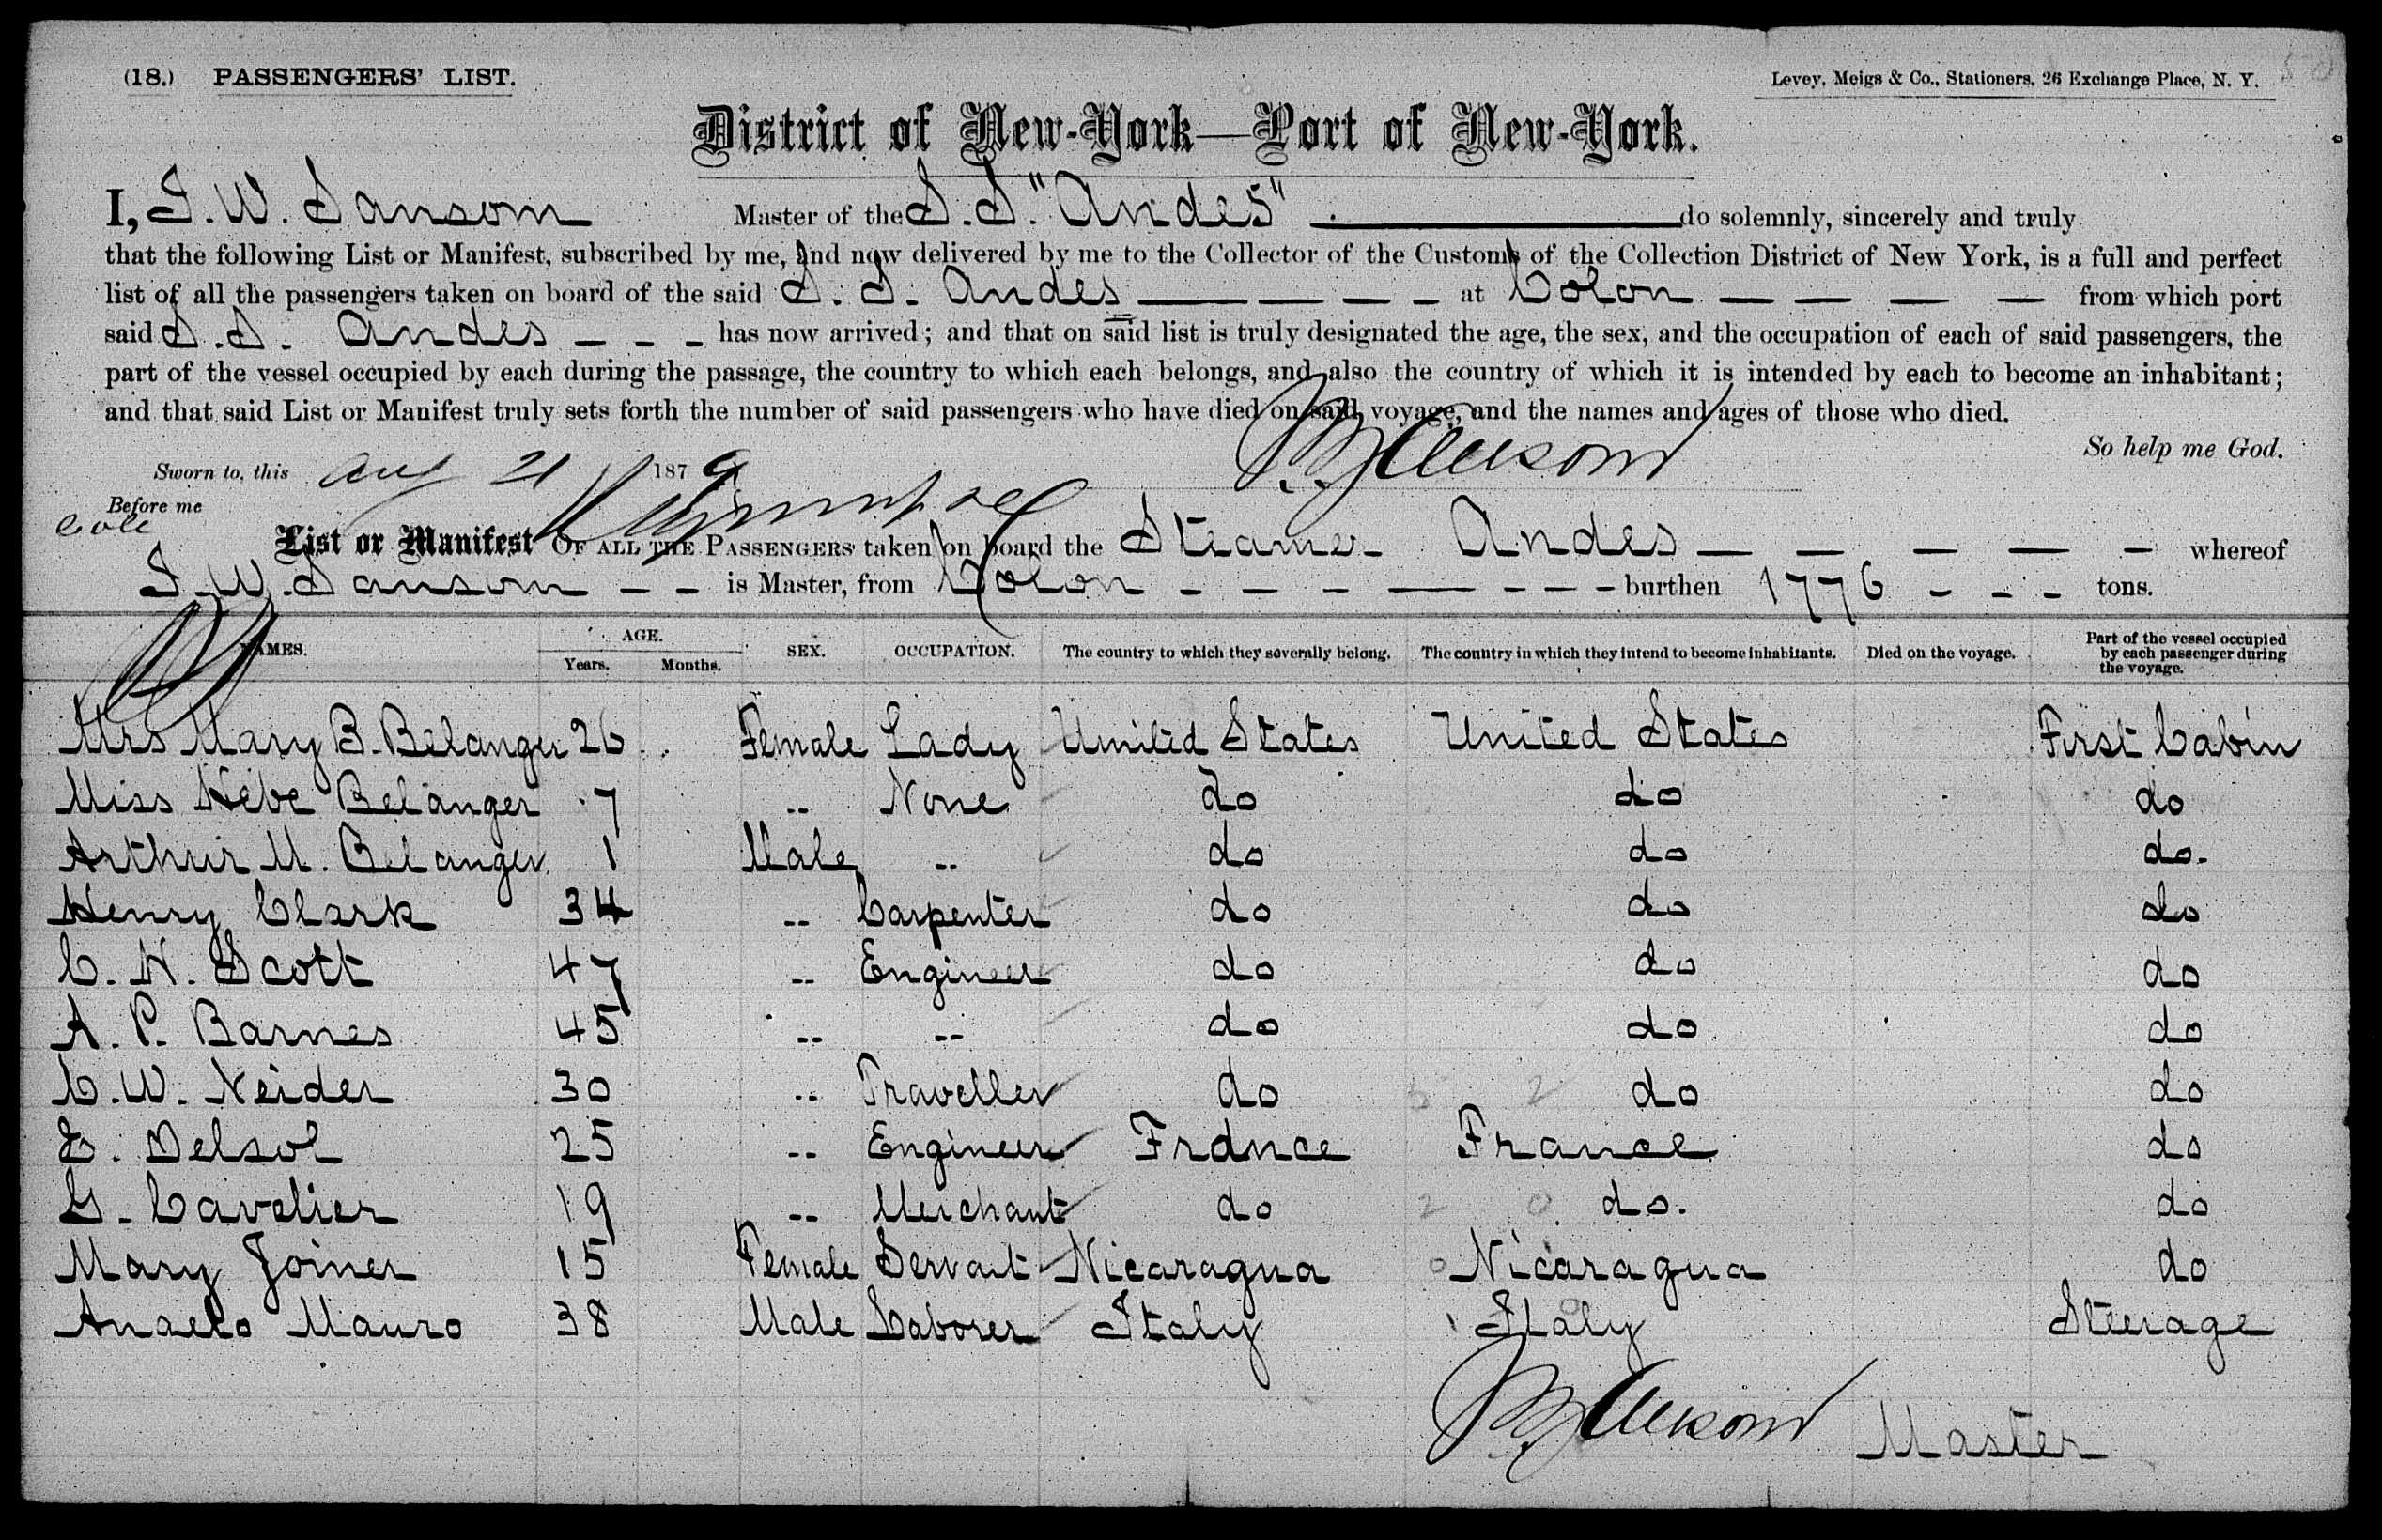 (18.) PASSENGERS' LIST.
Levey, Meigs & Co., Stationers, 26 Exchange Place, N. Y.
District of New-York—Port of New-York.
I, J. W. Sansom Master of the S. S. "Andes" do solemnly, sincerely and truly
that the following List or Manifest, subscribed by me, and now delivered by me to the Collector of the Customs of the Collection District of New York, is a full and perfect
list of all the passengers taken on board of the said S. S. Andes at Colon from which port
said S. S. Andes has now arrived; and that on said list is truly designated the age, the sex, and the occupation of each of said passengers, the
part of the vessel occupied by each during the passage, the country to which each belongs, and also the country of which it is intended by each to become an inhabitant;
and that said List or Manifest truly sets forth the number of said passengers who have died on said voyage, and the names and ages of those who died.
So help me God.
Sansom
Sworn to, this Aug 21 1879
Before me
List or Manifest OF ALL THE PASSENGERS taken on board the Steamer Andes whereof
J. W. Sansom is Master, from Colon burthen 1776 tons.
NAMES. AGE. Years. Months. SEX. OCCUPATION. The country to which they severally belong. The country in which they intend to become inhabitants. Died on the voyage. Part of the vessel occupied by each passenger during the voyage.
Mrs Mary B. Belanger 26 Female Lady United States United States First Cabin
Miss Hebe Belanger 7 " None do do do
Arthur M. Belanger 1 Male " do do do.
Henry Clark 34 " Carpenter do do do
C. H. Scott 47 " Engineer do do do
A. P. Barnes 45 " " do do do
C. W. Neider 30 " Traveller do do do
E. Delsol 25 " Engineer France France do
G. Cavelier 19 " Merchant do do. do
Mary Joiner 15 Female Servant Nicaragua Nicaragua do
Mauro 38 Male Laborer Italy Italy Steerage
Sansom Master